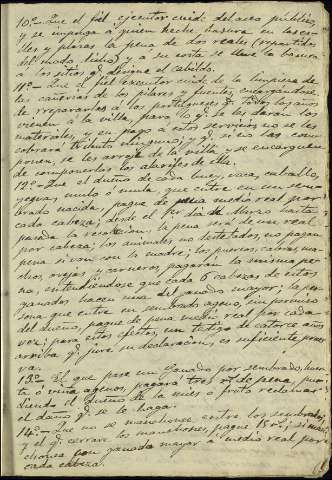 10º- Que el fiel ejecutor cuide del aseo público,
y se imponga á quien heche basura en las ca-
lles y plazas la pena de dos reales (repartidos
del modo dicho) y á su costa se lleve la basura
á los sitios q.e designe el cabildo.
11º- Que el fiel ejecutor cuide de la limpieza de
las cañerias de los pilares y fuentes, encargándose
de repararlos á los portugueses q.e todos los años
vienen á la villa, para lo q.e se les darán los
materiales, y en pago á estos servicios no se les
cobrará tributo ninguno; y q.e si no las com-
ponen, se les arroje de la villa y se encarguen
de componerlos los alarifes de ella.
12º- Que el dueño de cada buey, vaca, caballo,
yegua, mulo ó mula, que entre en un sem-
brado nacido, pague de pena medio real por
cada cabeza; desde el 1er dia de Marzo hasta
pasada la recoleccion, la pena será de un real
por cabeza; los animales no destetados, no pagan
pena si van con la madre; los puercos, cabras, ma-
chos, ovejas y carneros, pagarán la misma pe-
na, entendiendose que cada 6 cabezas de estos
ganados hacen una del ganado mayor; la per-
sona que entre en sembrado ageno, sin permiso
del dueño, pague de pena medio real por cada
vez; para estos efectos, un testigo de catorce años
arriba q.e jure su declaracion, es suficiente prue-
va.
13º- El que pase con ganado por sembrado, huer-
ta ó viña agenos, pagará tres r.s de pena, pu-
diendo el dueño de la mies ó fruto reclamar
el daño q.e se le haga.
14º- Que no se manchonee entre los sembrados,
y el q.e cerrare los manchones, pague 15 r.s; si man-
chonea con ganado mayor á medio real por
cada cabeza.